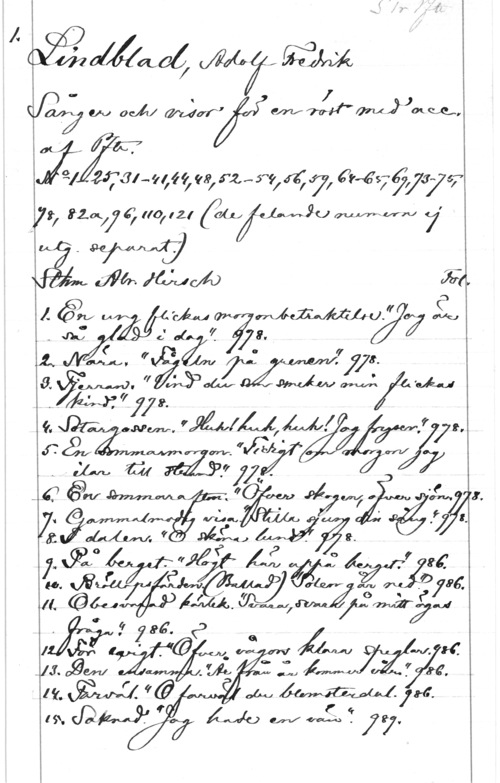 S Tr Pfte
1.
Lindblad, Adolf Fredrik
Sånger och visor för en röst med acc.
af Pfte.
Nº 1-25, 31-41, 44, 48, 52-54, 56, 59, 64-65, 69, 73-75,
78, 82a, 96, 110, 121 (de felande numren ej
utg. separat.)
Sthm Abr. Hirsch Fol.
1. En ung flickas morgonbetraktelse. "Jag är
så glad i dag". 978.
2. Nära. "Fågeln på grenen". 978.
3. Fjerran. "Vind du som smeker min flickas
kind." 978.
4. Sotargossen. "Huh! huh, huh! Jag fryser." 978.
5. En sommarmorgon. "Sidigt om morgon jag
ilar till strand." 978.
6. En sommarafton. "Öfver skogen, öfver sjön. 978.
7. Gammalmodig visa. "Stilla sjung din sång." 978.
8. I dalen. "O sköna lund" 978.
9. På berget. "Högt här uppå berget." 986.
10. Bröllopsfärden (Ballad) "Solen går ned." 986.
11. Obesvarad kärlek. "Svara, svara på mitt ögas
fråga". 986.
12. För evigt. "Öfver vågors klara speglar. 986.
13. Den ensamma. "År från år kommer vår." 986.
14. Farväl. "O farväl du blomsterdal. 986.
15. Saknad. "Jag hade en vän". 989.